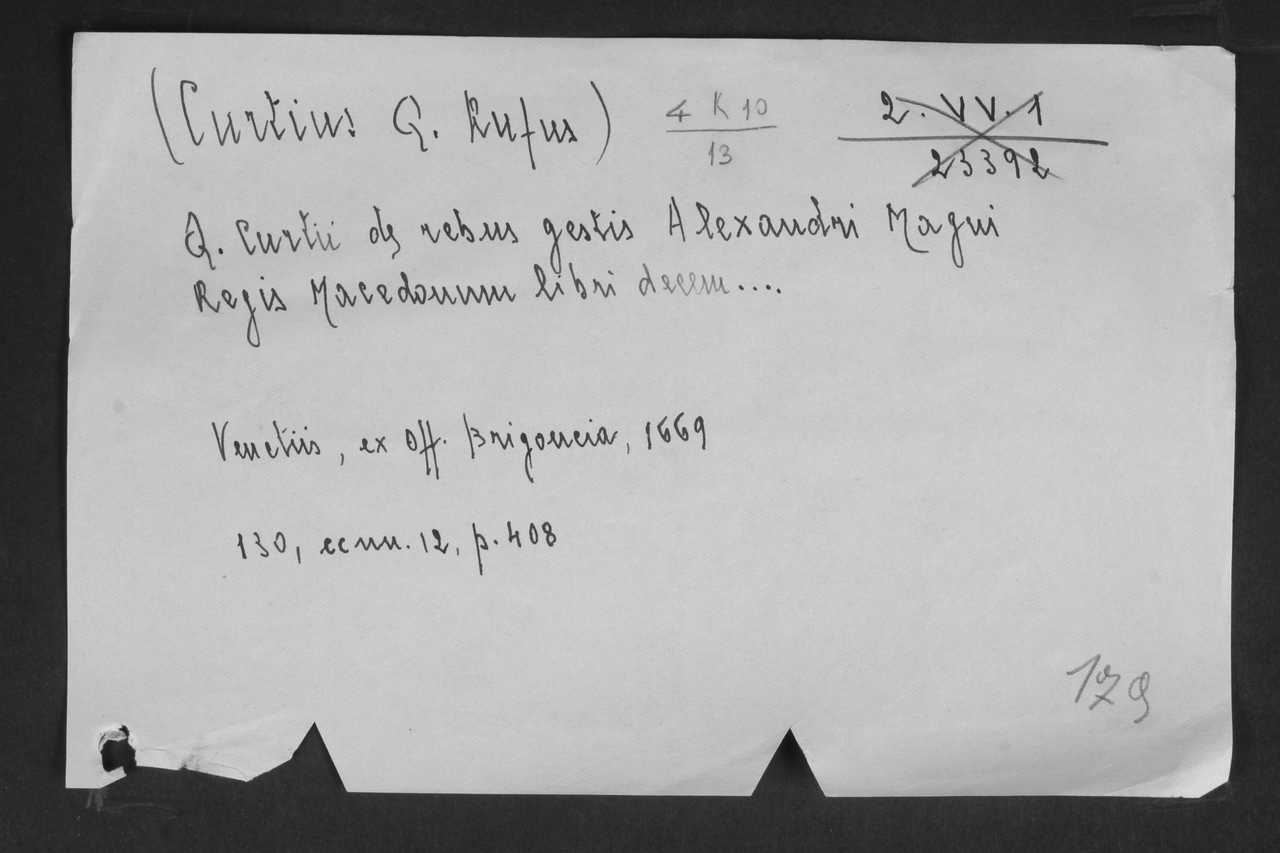 (Curtius Q. Rufus)
4 K 10
13
2. VV. 1
23392
Q. Curtii de rebus gestis Alexandri Magni
Regis Macedonum libri decem....
Venetiis, ex Off. Brigoncia, 1669
130, cc nn. 12, p. 408
179